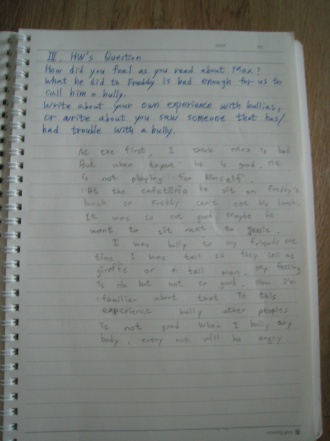 III. HW's Question
How did you feel as you read about Max?
what he did to Freddy is bad enough for us to
call him a bully.
Write about your own experience with bullies,
or write about you saw someone that has/
had trouble with a bully.
At the first, I think Max is bad
But when he is good. He
is not playing for himself.
At the cafeteria he sit on Freddy's
lunch so Freddy can't eat his lunch.
It was so not good maybe he
want to sit next to Jessie.
I was bully to my friends one
time. I was tall so they call as
giraffe or a tall man. my feeling
is ok but not so good. Now I'm
familiar about that. To this
experience bully other peoples
is not good. When I bully any
body, every one will be angry